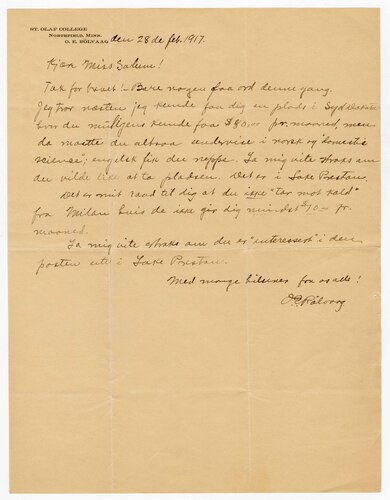 ST. OLAF COLLEGE
NORTHFIELD, MINN.
O. E. RÖLVAAG
den 28de feb. 1917.
Kjære Miss Salem!
Tak for brevet! – Bare nogen faa ord denne gang.
Jeg tror næsten jeg kunde faa dig en plads i Syd Dakota
hvor du muligens kunde faa $80,00 pr. maaned, men
da maatte du altsaa undervise i norsk og "domestic
science"; engelsk fik du neppe. La mig vite straks om
du vilde like at ta pladsen. Det er i Lake Preston.
Det er mit raad til dig at du ikke "tar mot kald"
fra Milan hvis de ikke gir dig mindst $70– pr.
maaned.
La mig vite straks om du er "interessert" i den
posten ute i Lake Preston.
Med mange hilsener fra os alle!
O. E. Rölvaag